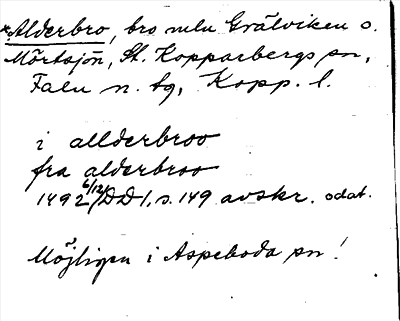 *Alderbro, bro mln Grälviken o.
Mörtsjön, St. Kopparbergs sn,
Falu n. tg, Kopp. l.
i allderbroo
fra alderbroo
1492 6/12 DD 1, s. 149 avskr. odat.
Möjligen i Aspeboda sn!